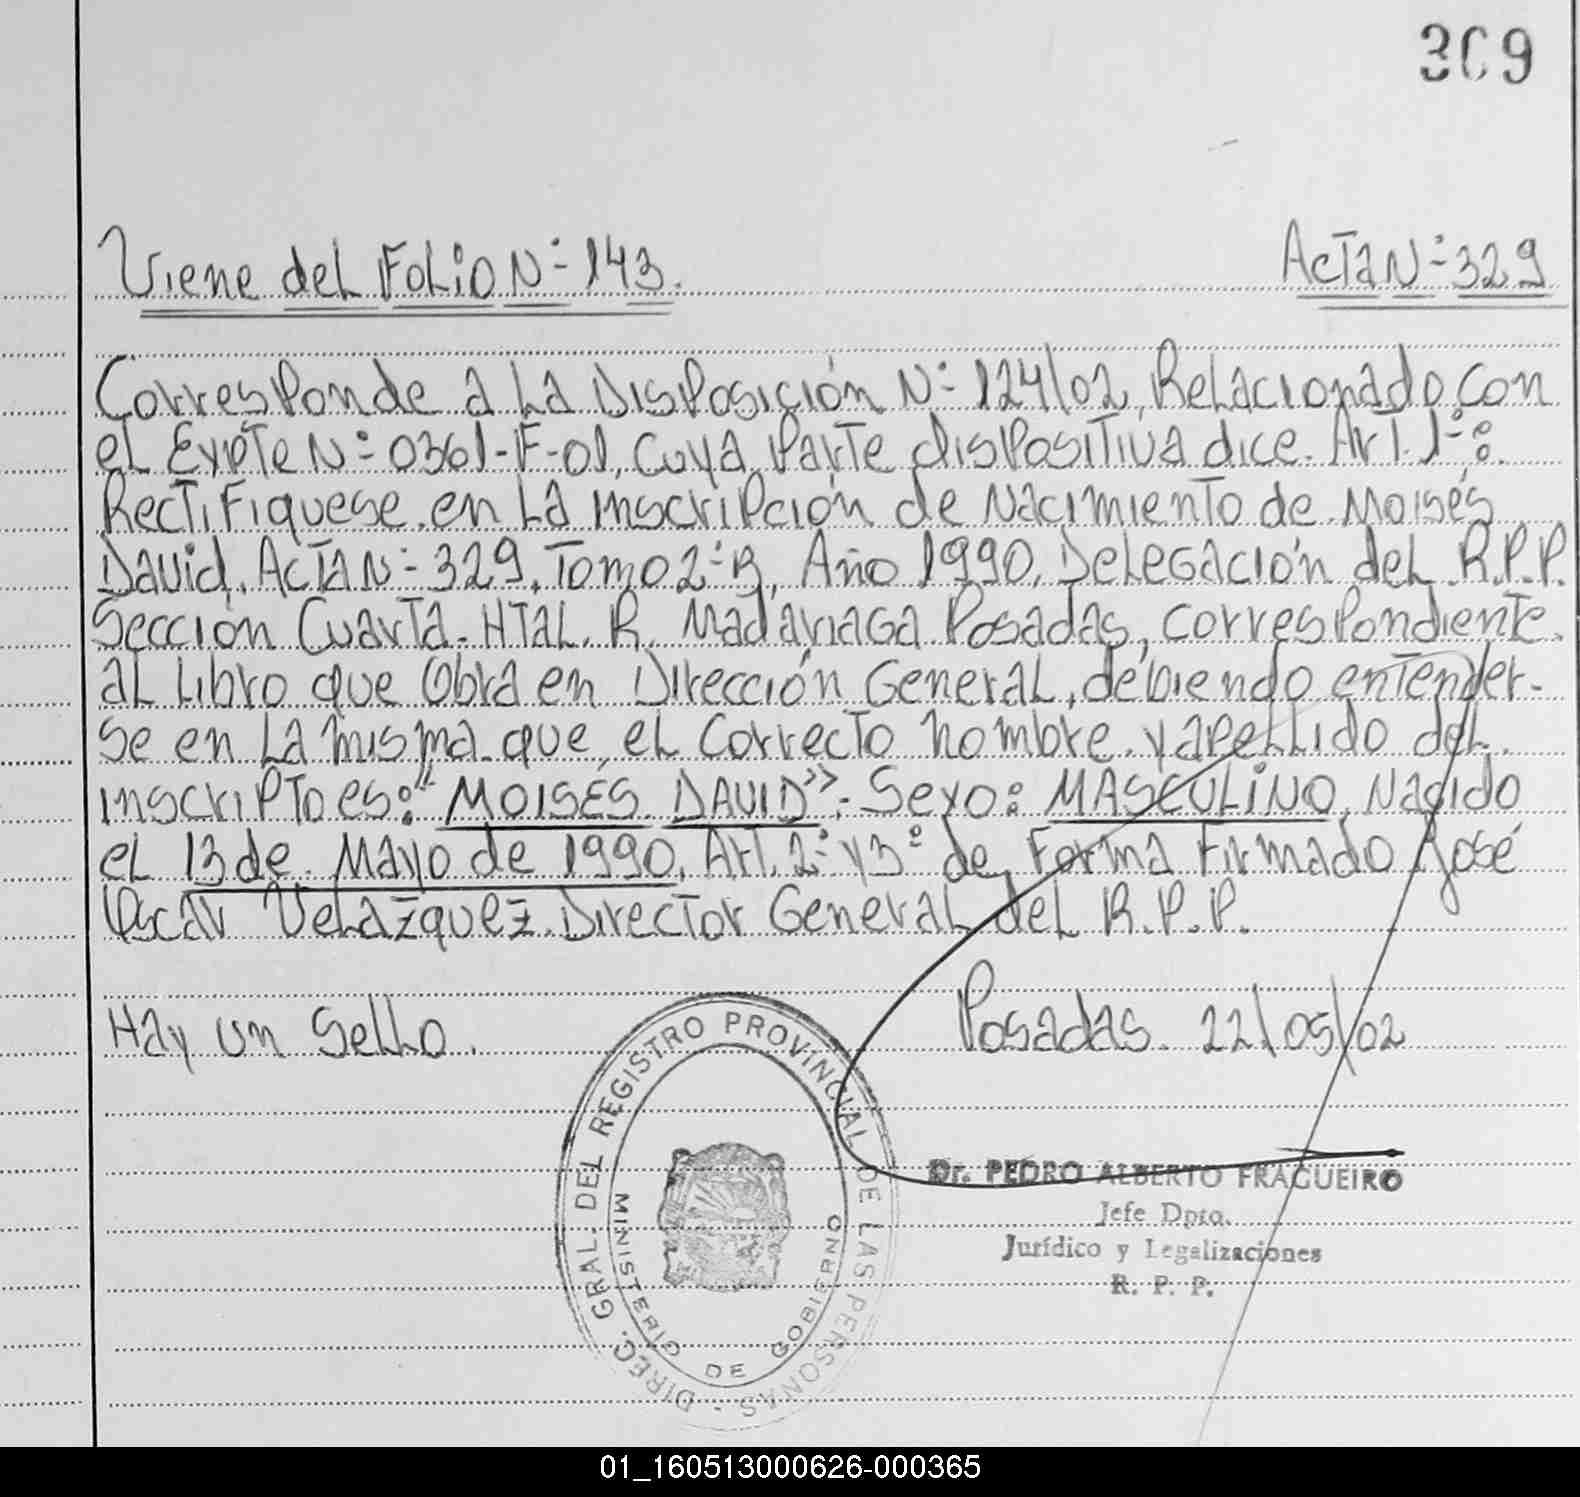 309
Viene del Folio Nº 143.
Acta Nº 329
Corresponde a la Disposición Nº 124/02, Relacionado con
el Expte Nº 0361-F-01, Cuya Parte dispositiva dice. Art. 1º:
Rectifiquese en la inscripción de Nacimiento de Moisés
David. Acta Nº 329. Tomo 2º B, Año 1990. Delegación del R.P.P.
Sección Cuarta. Htal. R. Madariaga Posadas, correspondiente
al Libro que Obra en Dirección General, debiendo entender-
se en la misma que el Correcto nombre y apellido del
inscripto es: "MOISÉS DAVID". Sexo: MASCULINO. Nacido
el 13 de Mayo de 1990. Art. 2º y 3º de Forma Firmado José
Oscar Velazquez. Director General del R.P.P.
Hay un Sello.
Posadas. 22/05/02
DIREC. GRAL. DEL REGISTRO PROVINCIAL DE LAS PERSONAS
MINISTERIO DE GOBIERNO
Dr. PEDRO ALBERTO FRAGUEIRO
Jefe Dpto.
Jurídico y Legalizaciones
R. P. P.
01_160513000626-000365